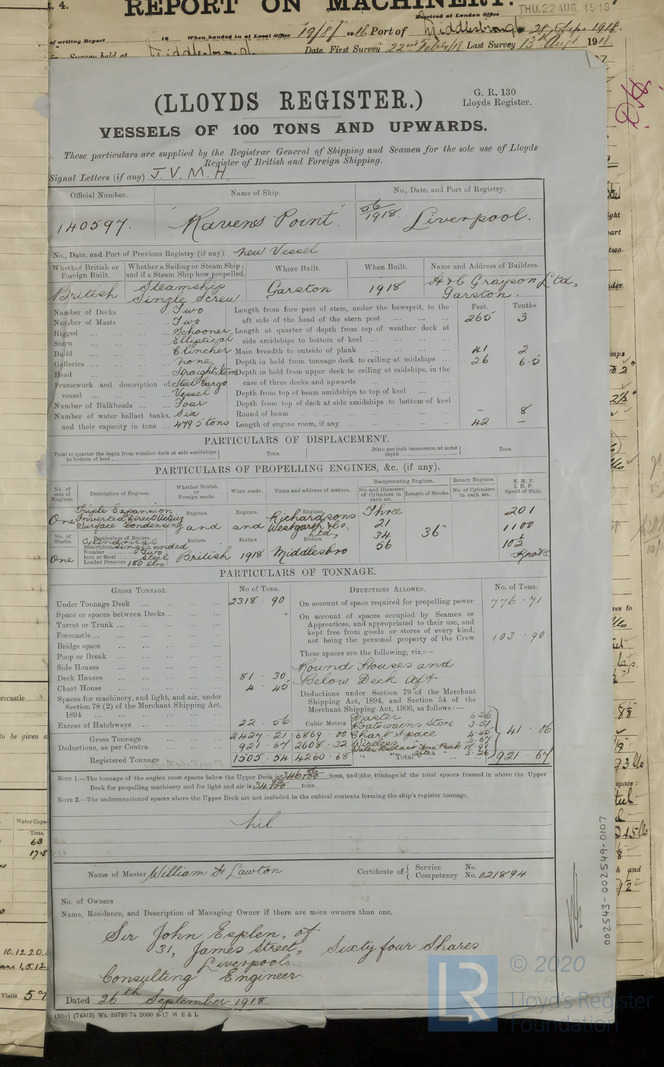 REPORT ON MACHINERY.
THU. 22 AUG 1918
Received at London Office
When handed in at Local Office 19/8/ 1918 Port of Middlesbrough
Date, First Survey 22nd Last Survey 13th Augt 1918
(LLOYDS REGISTER.)
G. R. 130
Lloyds Register.
VESSELS OF 100 TONS AND UPWARDS.
These particulars are supplied by the Registrar General of Shipping and Seamen for the sole use of Lloyds
Register of British and Foreign Shipping.
Signal Letters (if any) J.V.M.H.
Official Number. Name of Ship. No., Date, and Port of Registry.
140597. "Ravens Point" 56/1918 Liverpool.
No., Date, and Port of Previous Registry (if any). New Vessel
Whether British or Foreign Built. Whether a Sailing or Steam Ship; and if a Steam Ship how propelled. Where Built. When Built. Name and Address of Builders.
British Steamship Single Screw Garston 1918 H & C Grayson Ltd, Garston
Number of Decks Two
Number of Masts Two
Rigged Schooner
Stern Elliptical
Build Clincher
Galleries None
Head Straight Stem
Framework and description of vessel Steel Cargo Vessel
Number of Bulkheads Four
Number of water ballast tanks, and their capacity in tons Six 479.5 tons
Feet. Tenths
Length from fore part of stem, under the bowsprit, to the aft side of the head of the stern post 265 3
Length at quarter of depth from top of weather deck at side amidships to bottom of keel
Main breadth to outside of plank 41 2
Depth in hold from tonnage deck to ceiling at midships 26 6.5
Depth in hold from upper deck to ceiling at midships, in the case of three decks and upwards
Depth from top of beam amidships to top of keel
Depth from top of deck at side amidships to bottom of keel
Round of beam - 8
Length of engine room, if any 42 -
PARTICULARS OF DISPLACEMENT.
Total to quarter the depth from weather deck at side amidships to bottom of keel Tons. Ditto per inch immersion at same depth Tons.
PARTICULARS OF PROPELLING ENGINES, &c. (if any).
No. of sets of Engines. Description of Engines. Whether British or Foreign made. When made. Name and address of makers. Reciprocating Engines. Rotary Engines. N.H.P. I.H.P. Speed of Ship.
No. and Diameter of Cylinders in each set. Length of Stroke. No. of Cylinders in each set.
One Triple Expansion Inverted Direct Acting Surface Condensing
Engines. Engines. Engines.
and and Richardsons Westgarth & Co. Ltd,
Three 21 34 56 36" 201 1100 10½ Knots
No. of Shafts. Particulars of Boilers. Boilers. Boilers. Boilers.
One Description Cylindrical Single ended
Number Two
Iron or Steel Steel
Loaded Pressure 180 lbs
British 1918 Middlesbro
PARTICULARS OF TONNAGE.
GROSS TONNAGE. No. of Tons.
Under Tonnage Deck 2318.90
Space or spaces between Decks
Turret or Trunk
Forecastle
Bridge space
Poop or Break
Side Houses
Deck Houses 81.30
Chart House 4.45
Spaces for machinery, and light, and air, under Section 78 (2) of the Merchant Shipping Act, 1894
Excess of Hatchways 22.56
Cubic Metres
Gross Tonnage 2427.21 6869.00
Deductions, as per Contra 921.67 2608.32
Registered Tonnage 1505.54 4260.68
DEDUCTIONS ALLOWED. No. of Tons.
On account of space required for propelling power 776.71
On account of spaces occupied by Seamen or Apprentices, and appropriated to their use, and kept free from goods or stores of every kind, not being the personal property of the Crew 103.90
These spaces are the following, viz:—
Round Houses and Below Deck Aft
Deductions under Section 79 of the Merchant Shipping Act, 1894, and Section 54 of the Merchant Shipping Act, 1906, as follows:—
Master
Boatswains Store
Chart Space
Wireless
Water Ballast Fore Peak
41.06
Total 921.67
NOTE 1.—The tonnage of the engine room spaces below the Upper Deck is tons, and the tonnage of the total spaces framed in above the Upper
Deck for propelling machinery and for light and air is tons.
NOTE 2.—The undermentioned spaces above the Upper Deck are not included in the cubical contents forming the ship's register tonnage.
Nil
Name of Master William H Lawton Certificate of { Service No. Competency No. 021894
No. of Owners
Name, Residence, and Description of Managing Owner if there are more owners than one.
Sir John Esplen, of
31, James Street, Sixty four Shares
Liverpool.
Consulting Engineer
Dated 26th September 1918
002543-002549-0107
© 2020
LR
Lloyd's Register
Foundation